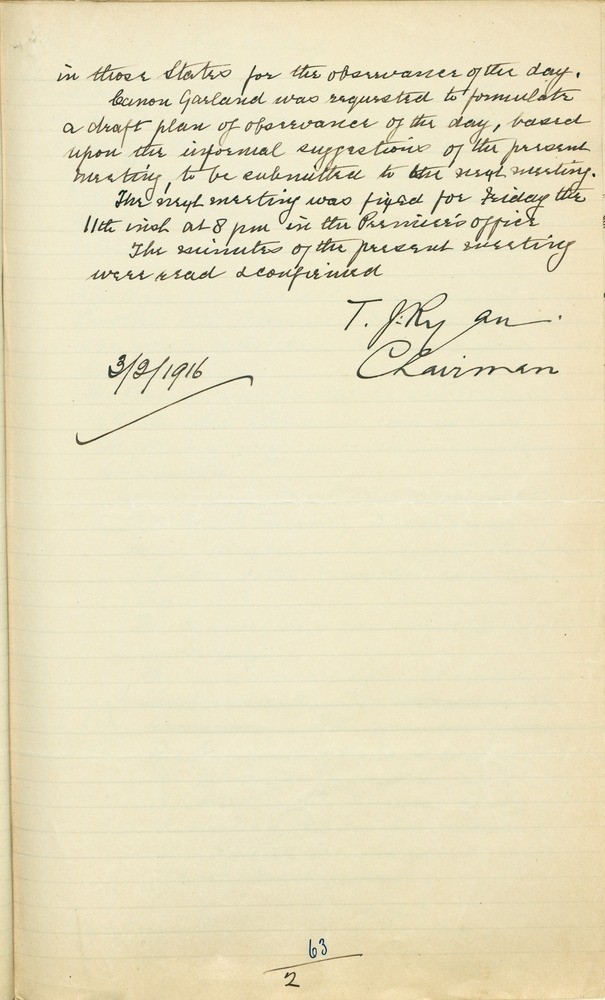 in those States for the observance of the day.
Canon Garland was requested to formulate
a draft plan of observance of the day, based
upon the informal suggestions of the present
meeting, to be submitted to the next meeting.
The next meeting was fixed for Friday the
11th inst at 8 pm in the Premier's office
The minutes of the present meeting
were read & confirmed
T. J. Ryan.
Chairman
3/2/1916
63
2